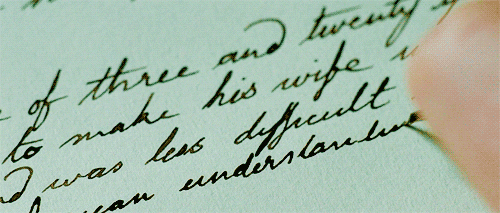 of three and twenty
to make his wife
was less difficult
can understan